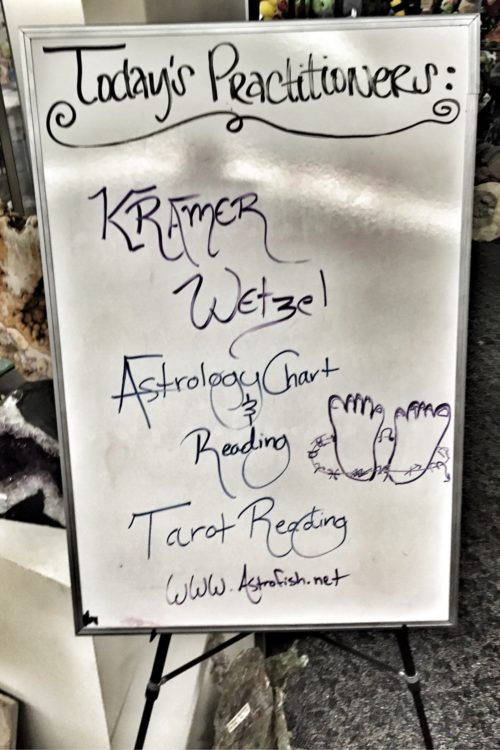 Today's Practitioners:
KRAMER
Wetzel
Astrology Chart
&
Reading
Tarot Reading
WWW.Astrofish.net